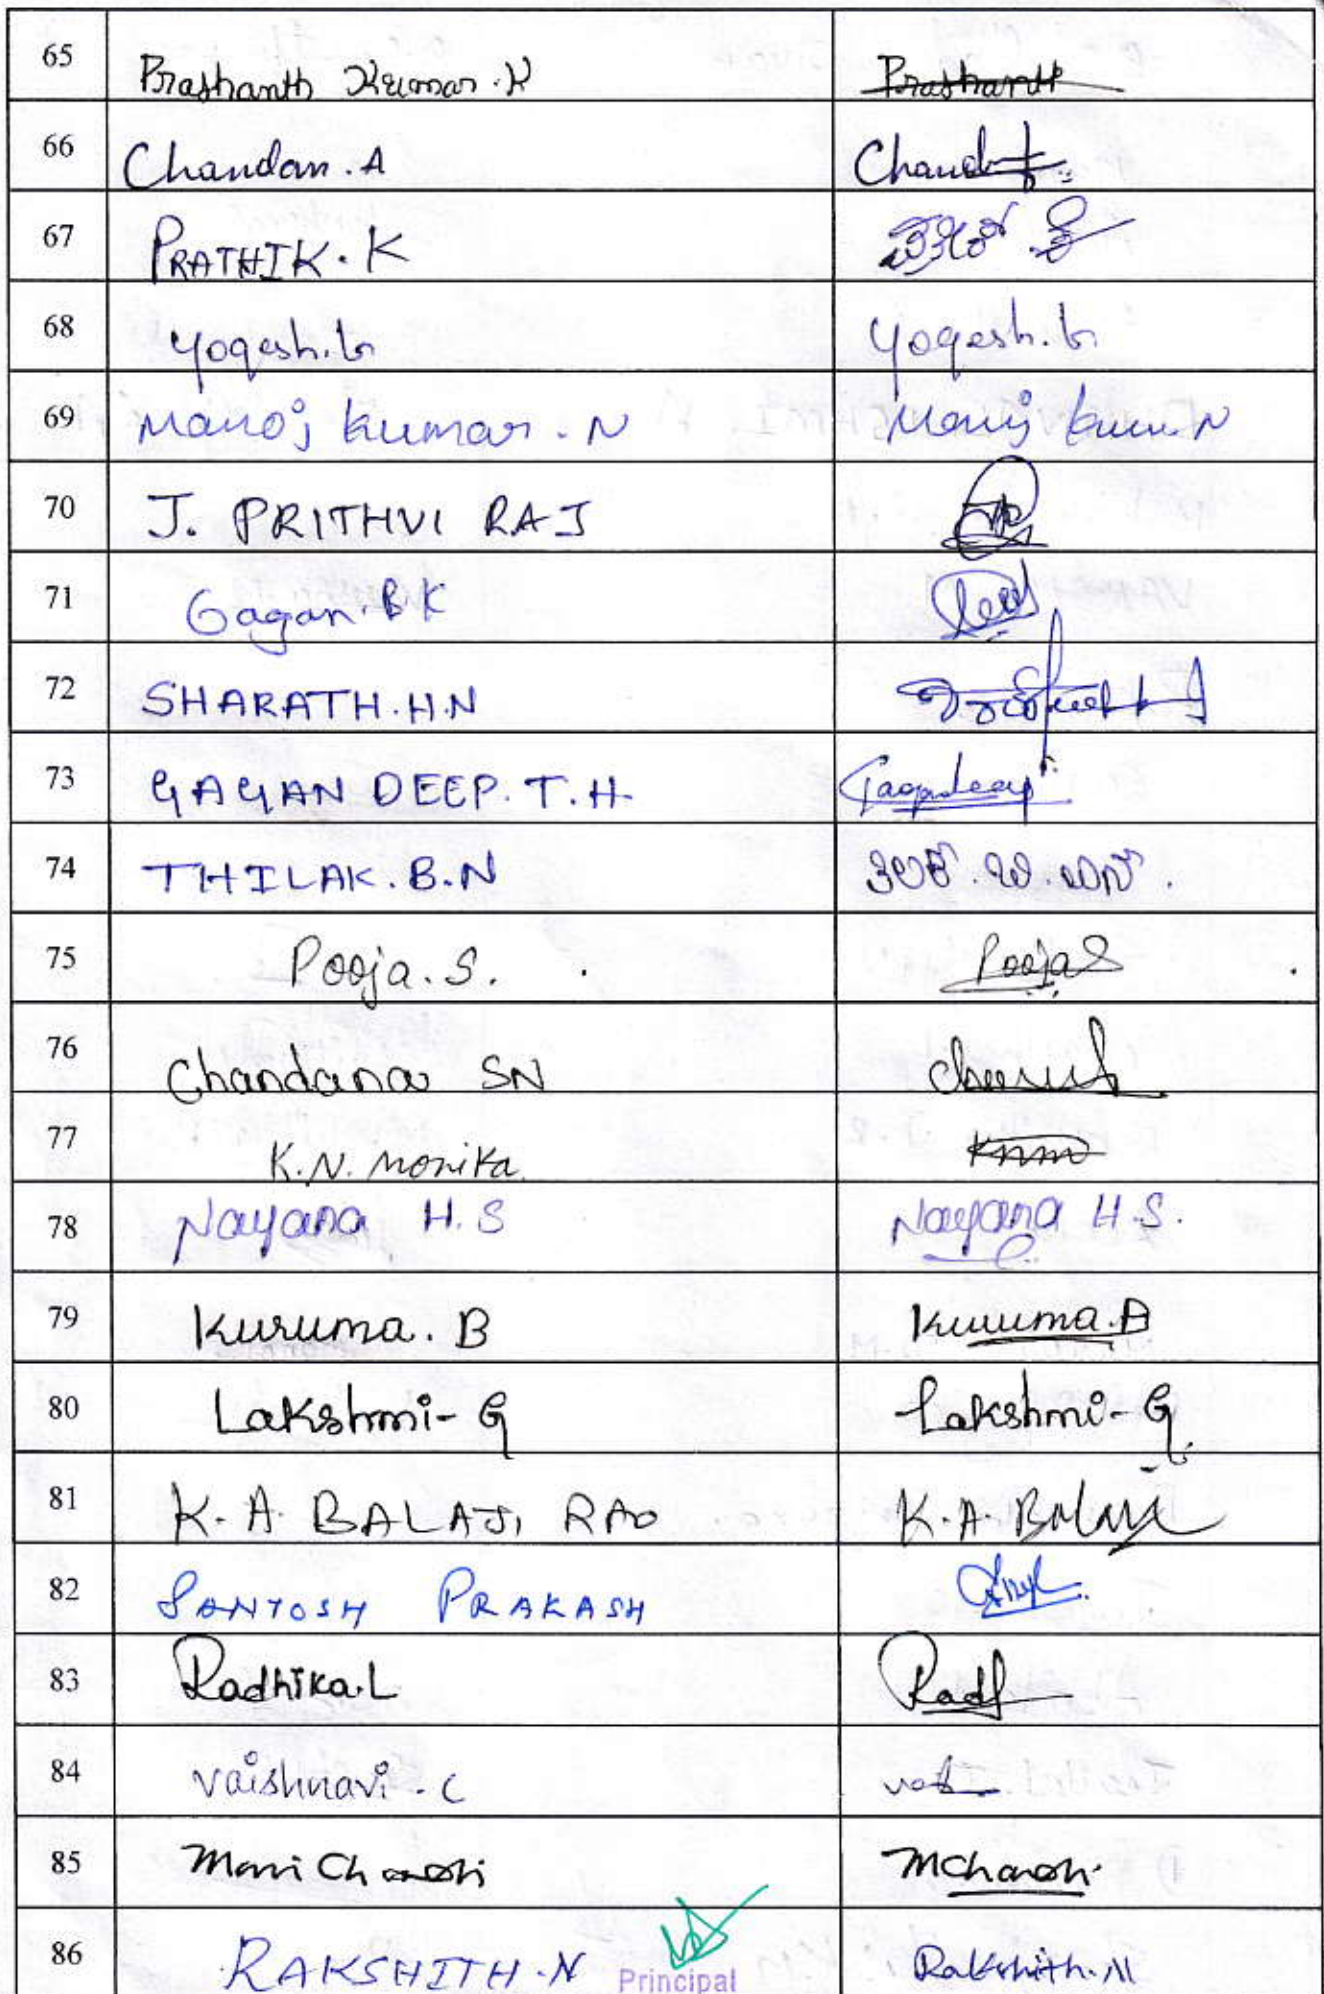 65 Prashanth Kumar.K Prashanth
66 Chandan.A
67 PRATHIK.K
68 Yogesh.G Yogesh.G
69 Manoj kumar.N
70 J. PRITHVI RAJ
71 Gagan.B K
72 SHARATH.H.N
73 GAGAN DEEP.T.H. Gagandeep
74 THILAK.B.N ತಿಲಕ್.ಬಿ.ಎನ್.
75 Pooja.S. Pooja S
76 Chandana SN
77 K.N.Monika KNM
78 Nayana H.S Nayana H.S.
79 Kuruma.B Kuruma.B
80 Lakshmi-G Lakshmi-G
81 K.A.BALAJI RAO K.A.Balaji
82 SANTOSH PRAKASH
83 Radhika.L
84 Vaishnavi.C
85
86 RAKSHITH.N Rakshith.N
Principal